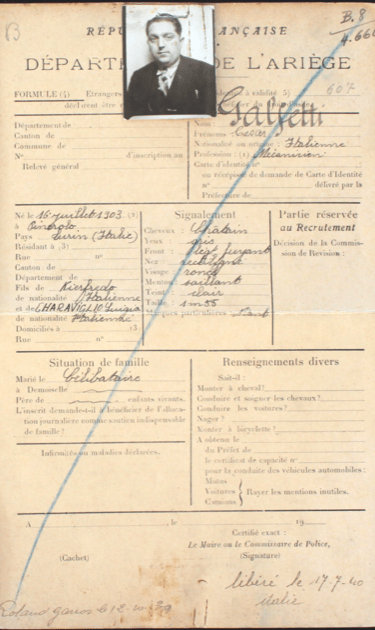 B. 8
4.660
RÉPUBLIQUE FRANÇAISE
DÉPARTEMENT DE L'ARIÈGE
607
FORMULE (4) Etrangers
déclirent être
Galfetti
Département de
Canton de
Commune de
N° d'inscription au
Relevé général
Nom
Prénoms Cesar
Nationalité ou origine : Italienne
Profession : (2) Mécanicien
Carte d'identité n°
ou récépisse de demande de Carte d'Identité
n° délivré par la
Préfecture de
Né le 16 juillet 1903 (3)
à Pinerolo
Pays Turin (Italie)
Résidant à (3) :
Rue n°
Canton de
Département de
Fils de
de nationalité Italienne
et de CHARAVIGLIO Luigia
de nationalité Italienne
Domiciliés à (3)
Rue n°
Signalement
Cheveux : Chatain
Yeux : gris
Front : légt fuyant
Nez : rectiligne
Visage : rond
Menton : saillant
Teint : clair
Taille : 1m55
Marques particulières : Néant
Partie réservée
au Recrutement
Décision de la Commis-
sion de Revision :
Situation de famille
Marié le Célibataire
à Demoiselle
Père de enfants vivants.
L'inscrit demande-t-il à bénéficier de l'alloca-
tion journalière comme soutien indispensable
de famille ?
Infirmités ou maladies déclarées.
Renseignements divers
Sait-il :
Monter à cheval ?
Conduire et soigner les chevaux ?
Conduire les voitures ?
Nager ?
Monter à bicyclette ?
A obtenu le
du Préfet de
le certificat de capacité n°
pour la conduite des véhicules automobiles :
Motos
Voitures Rayer les mentions inutiles.
Camions
A , le 19
Certifié exact :
Le Maire ou le Commissaire de Police,
(Cachet) (Signature)
libéré le 17.7.40
italie
Roland garros le 12-10-39